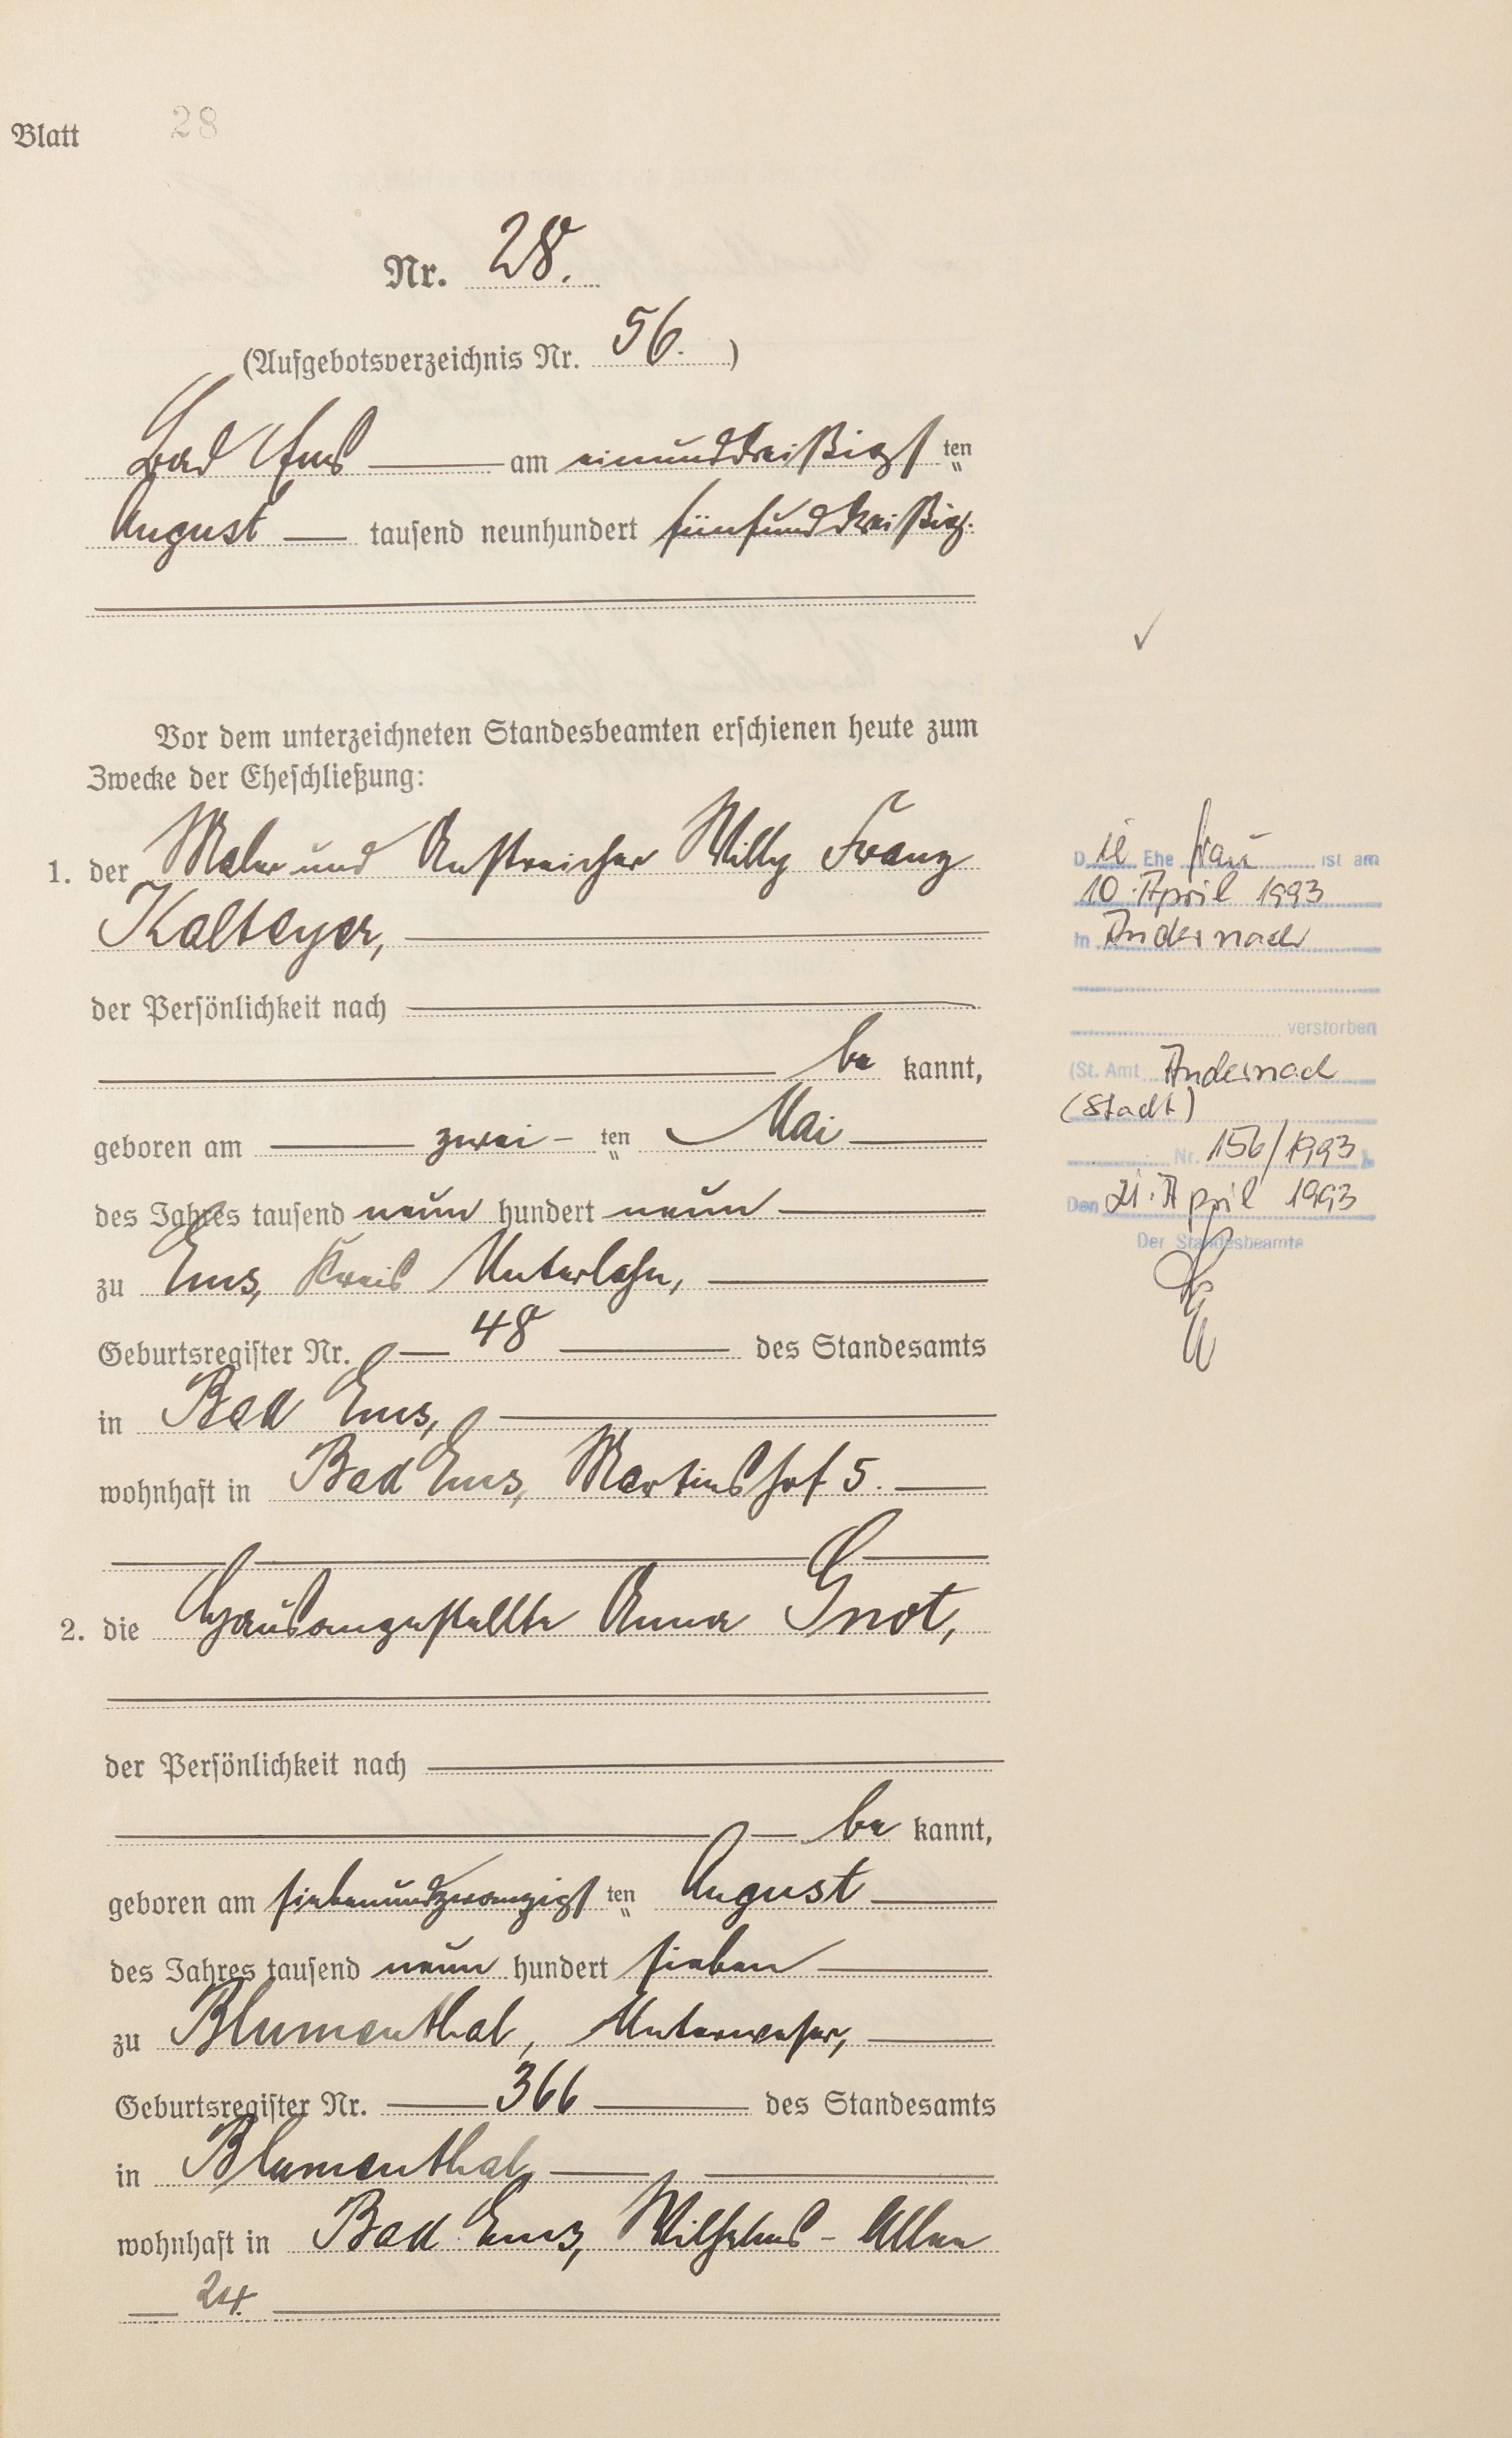 Blatt 28
Nr. 28.
(Aufgebotsverzeichnis Nr. 56.)
Bad Ems am einunddreißigsten
August tausend neunhundert fünfunddreißig.
Vor dem unterzeichneten Standesbeamten erschienen heute zum
Zwecke der Eheschließung:
1. der Maler und Anstreicher Willy Franz
Kalteyer,
der Persönlichkeit nach
be kannt,
geboren am zwei-ten Mai
des Jahres tausend neun hundert neun
zu Ems, Kreis Unterlahn,
Geburtsregister Nr. 48 des Standesamts
in Bad Ems,
wohnhaft in Bad Ems, Martinshof 5.
2. die Hausangestellte Anna Gnot,
der Persönlichkeit nach
be kannt,
geboren am siebenundzwanzigsten August
des Jahres tausend neun hundert sieben
zu Blumenthal, Unterweser,
Geburtsregister Nr. 366 des Standesamts
in Blumenthal,
wohnhaft in Bad Ems, Wilhelms-Allee
24.
Die Ehe frau ist am
10. April 1993
in Andernach
verstorben
(St. Amt Andernach
(Stadt)
Nr. 156/1993)
Den 21. April 1993
Der Standesbeamte